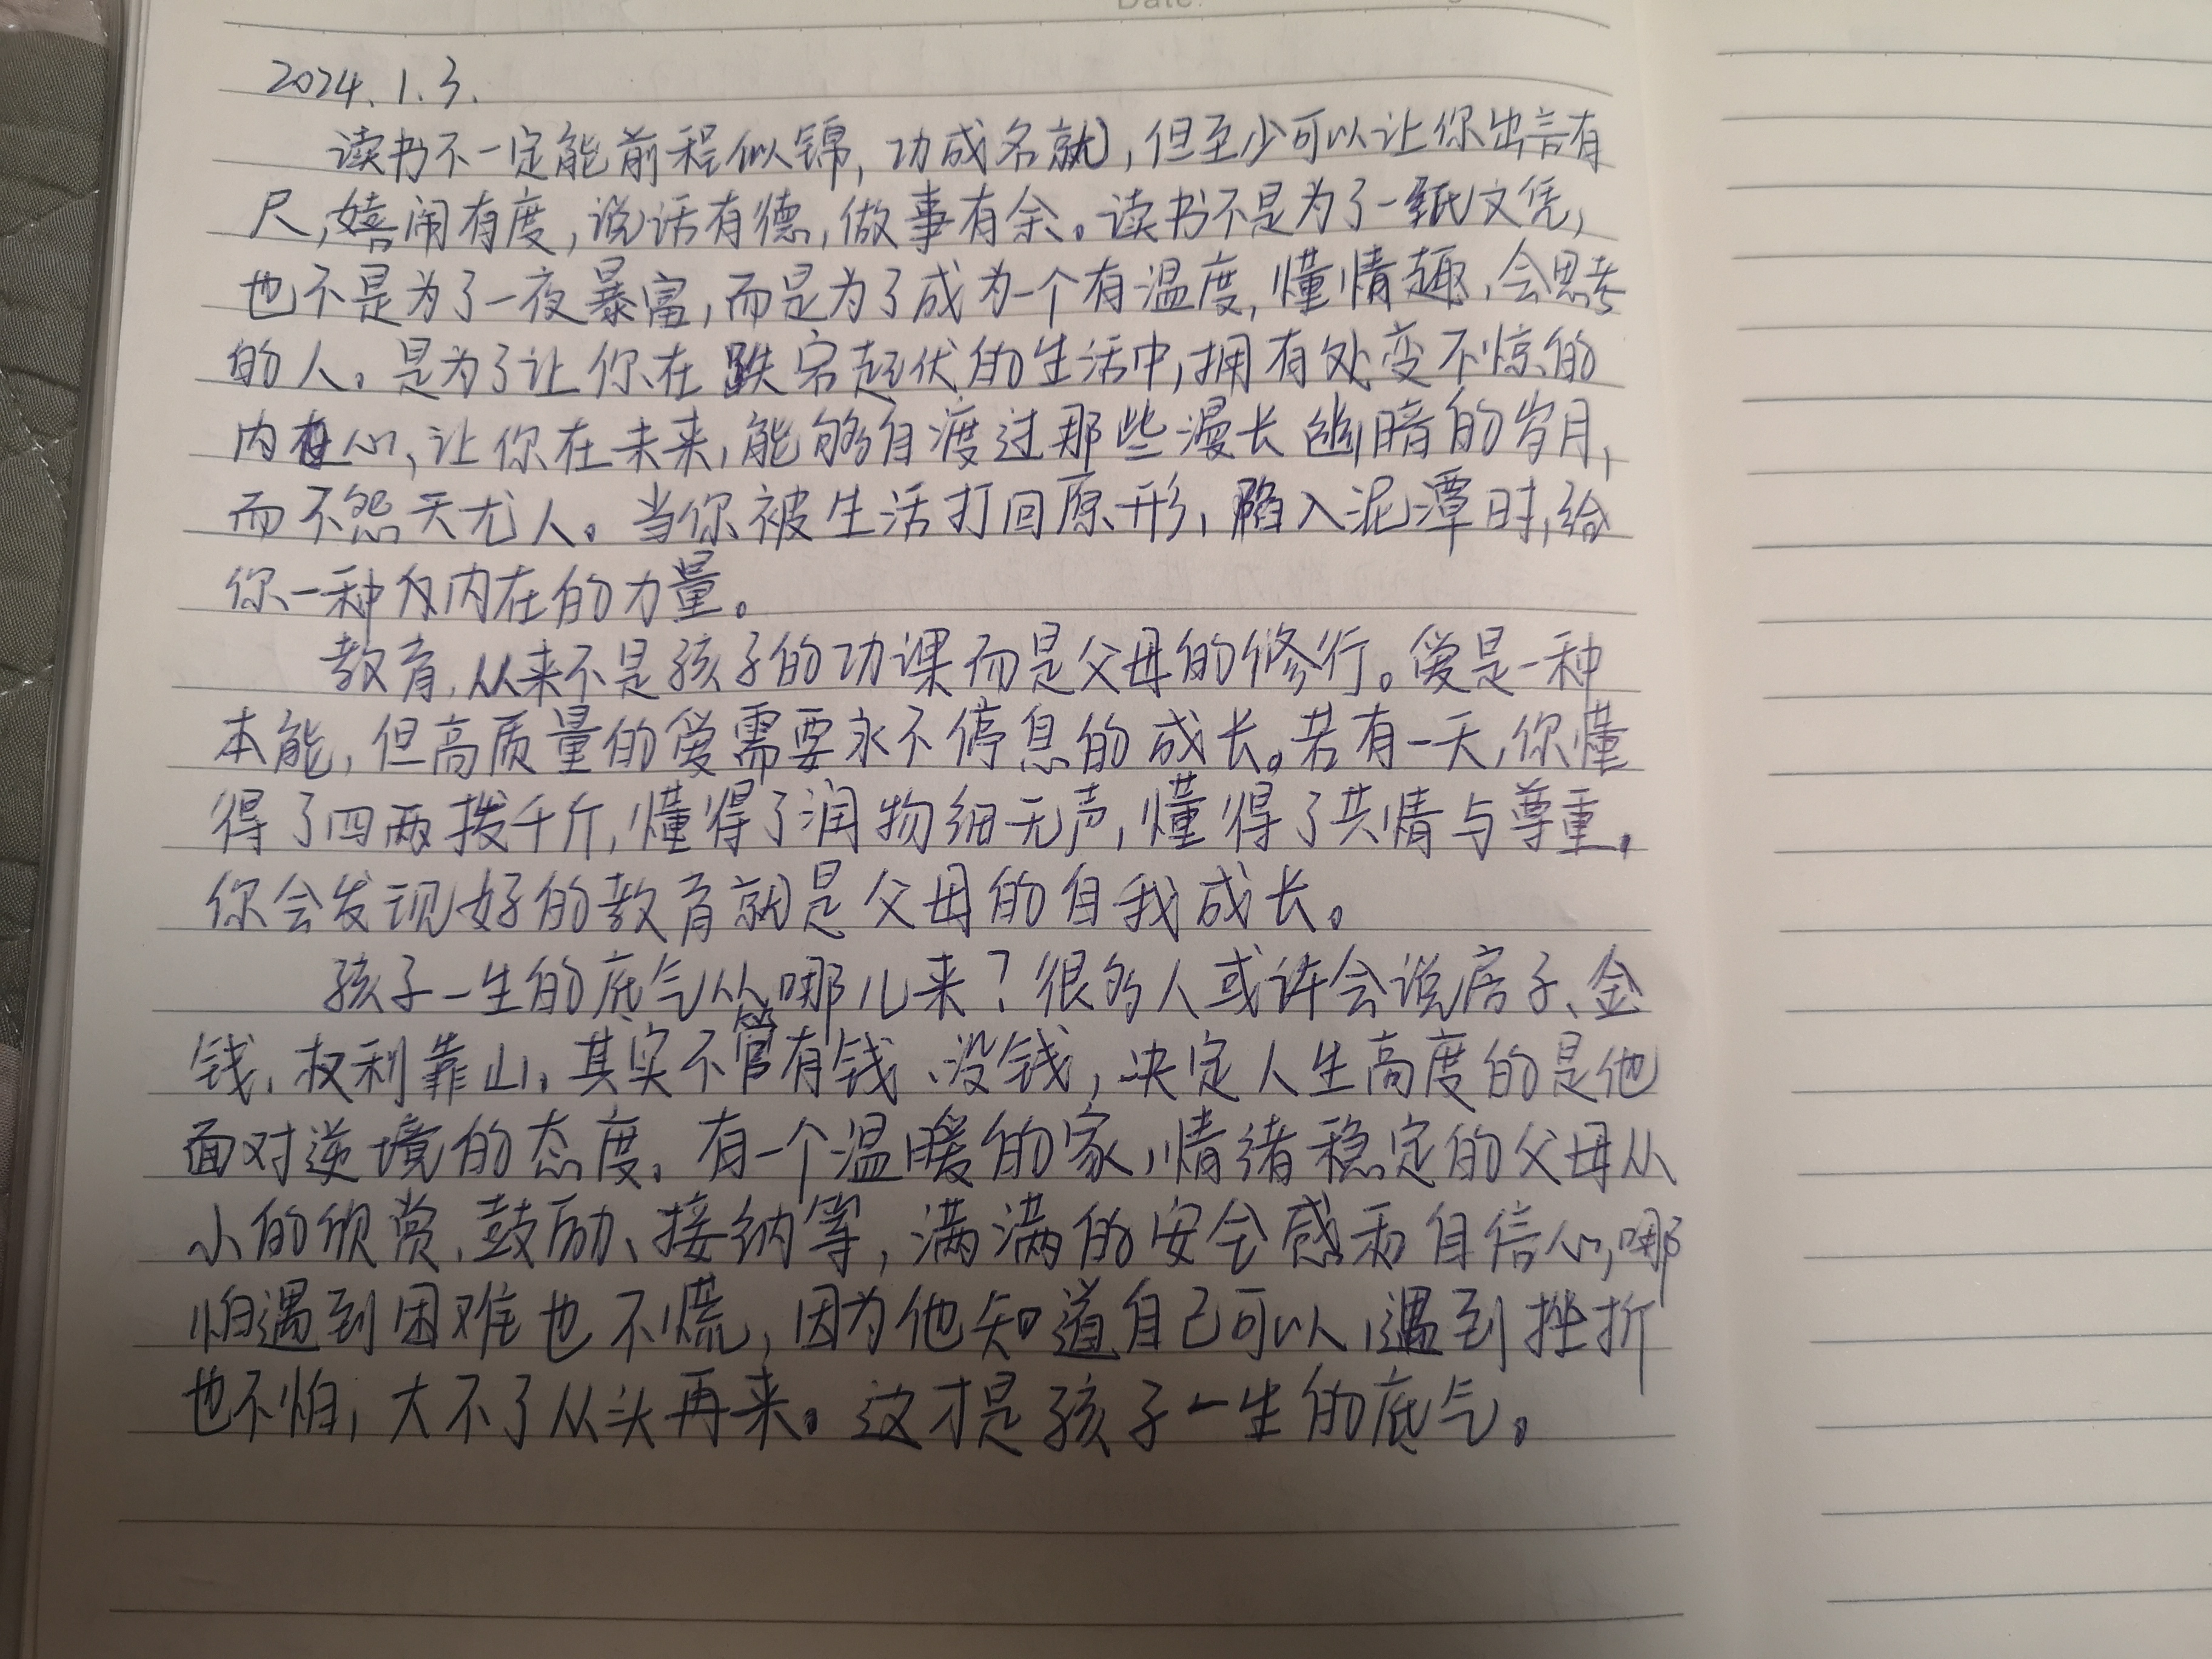 Date:
2024.1.3.
读书不一定能前程似锦,功成名就,但至少可以让你出言有
尺,嬉闹有度,说话有德,做事有余。读书不是为了一纸文凭,
也不是为了一夜暴富,而是为了成为一个有温度,懂情趣,会思考
的人。是为了让你在跌宕起伏的生活中,拥有处变不惊的
内心,让你在未来,能够自渡过那些漫长幽暗的岁月,
而不怨天尤人。当你被生活打回原形,陷入泥潭时,给
你一种内在的力量。
教育,从来不是孩子的功课而是父母的修行。爱是一种
本能,但高质量的爱需要永不停息的成长。若有一天,你懂
得了四两拨千斤,懂得了润物细无声,懂得了共情与尊重,
你会发现好的教育就是父母的自我成长。
孩子一生的底气从哪儿来?很多人或许会说房子、金
钱、权利靠山。其实不管有钱、没钱,决定人生高度的是他
面对逆境的态度。有一个温暖的家,情绪稳定的父母从
小的欣赏、鼓励、接纳等,满满的安全感和自信心,哪
怕遇到困难也不慌,因为他知道自己可以,遇到挫折
也不怕,大不了从头再来。这才是孩子一生的底气。